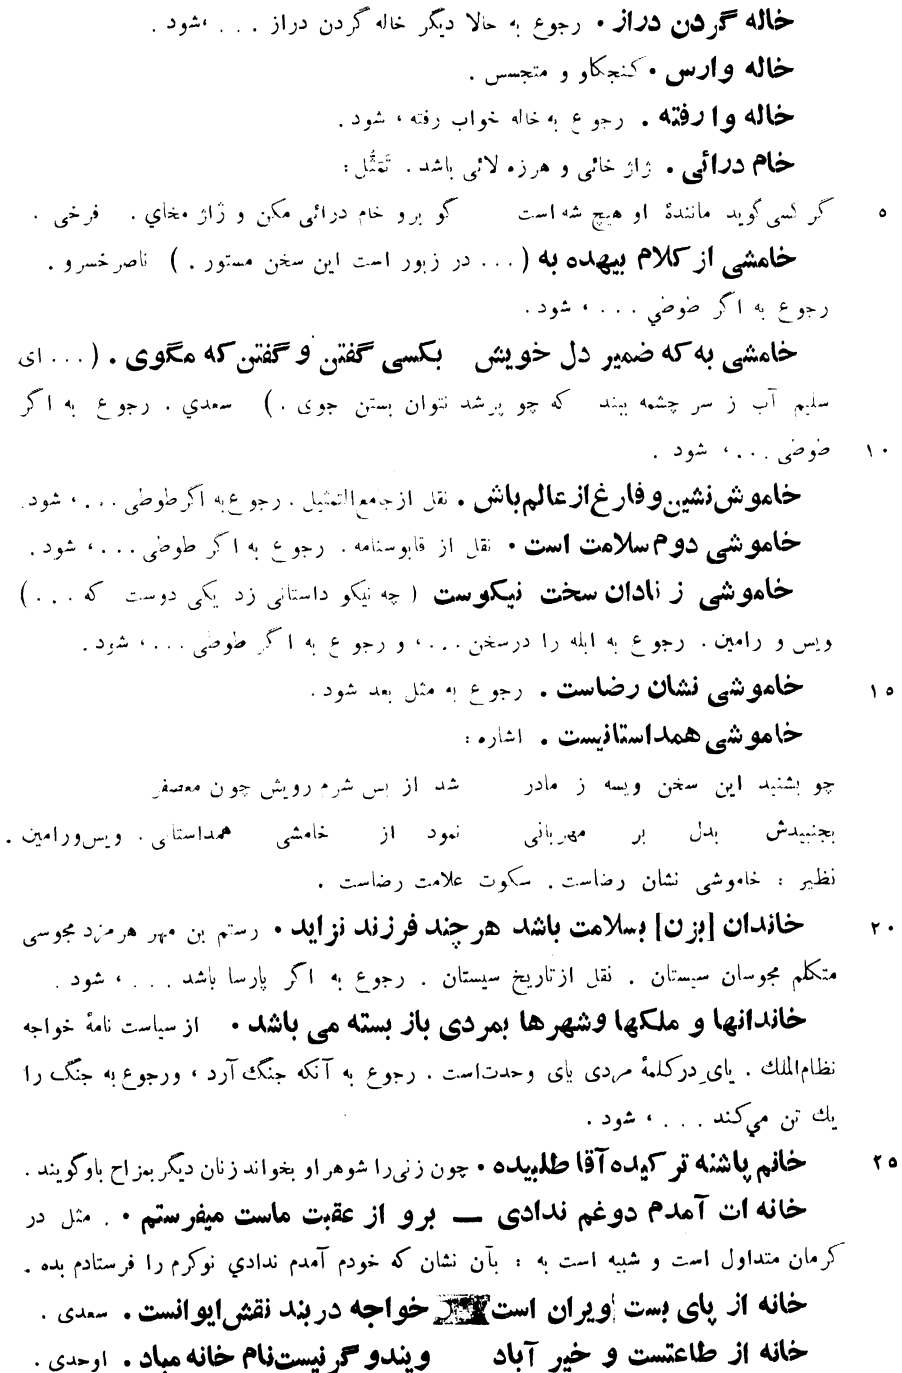 خاله گردن دراز . رجوع به حالا دیگر خاله گردن دراز . . . ، شود .
خاله وارس . کنجکاو و متجسس .
خاله وا رفته . رجوع به خاله خواب رفته ، شود .
خام درائی . ژاژ خائی و هرزه لائی باشد . تَمَثُّل :
۵ گر کسی گوید مانندهٔ او هیچ شه است گو برو خام درائی مکن و ژاژ مخای . فرخی .
خامشی از کلام بیهده به ( . . . در زبور است این سخن مستور . ) ناصر خسرو .
رجوع به اگر طوطی . . . ، شود .
خامشی به که ضمیر دل خویش بکسی گفتن و گفتن که مگوی . ( . . . ای
سلیم آب ز سر چشمه ببند که چو پر شد نتوان بستن جوی . ) سعدی . رجوع به اگر
۱۰ طوطی . . . ، شود .
خاموش نشین و فارغ از عالم باش . نقل از جامع التمثیل . رجوع به اگر طوطی . . . ، شود .
خاموشی دوم سلامت است . نقل از قابوسنامه . رجوع به اگر طوطی . . . ، شود .
خاموشی ز نادان سخت نیکوست ( چه نیکو داستانی زد یکی دوست که . . . )
ویس و رامین . رجوع به ابله را در سخن . . . ، و رجوع به اگر طوطی . . . ، شود .
۱۵ خاموشی نشان رضاست . رجوع به مثل بعد شود .
خاموشی همداستانیست . اشاره :
چو بشنید این سخن ویسه ز مادر شد از بس شرم رویش چون معصفر
بجنبیدش بدل بر مهربانی نمود از خامشی همداستانی . ویس و رامین .
نظیر : خاموشی نشان رضاست . سکوت علامت رضاست .
۲۰ خاندان [بزن] بسلامت باشد هر چند فرزند نزاید . رستم بن مهر هرمزد مجوسی
متکلم مجوسان سیستان . نقل از تاریخ سیستان . رجوع به اگر پارسا باشد . . . ، شود .
خاندانها و ملکها و شهرها بمردی باز بسته می باشد . از سیاست نامهٔ خواجه
نظام‌الملك . یای در کلمهٔ مردی یای وحدت است . رجوع به آنکه جنگ آرد ، و رجوع به جنگ را
یك تن می‌کند . . . ، شود .
۲۵ خانم پاشنه ترکیده آقا طلبیده . چون زنی را شوهر او بخواند زنان دیگر بمزاح باو گویند .
خانه ات آمدم دوغم ندادی — برو از عقبت ماست میفرستم . . مثل در
کرمان متداول است و شبیه است به : بآن نشان که خودم آمدم ندادی نوکرم را فرستادم بده .
خانه از پای بست ویران است خواجه در بند نقش ایوانست . سعدی .
خانه از طاعتست و خیر آباد ویندو گر نیست نام خانه مباد . اوحدی .